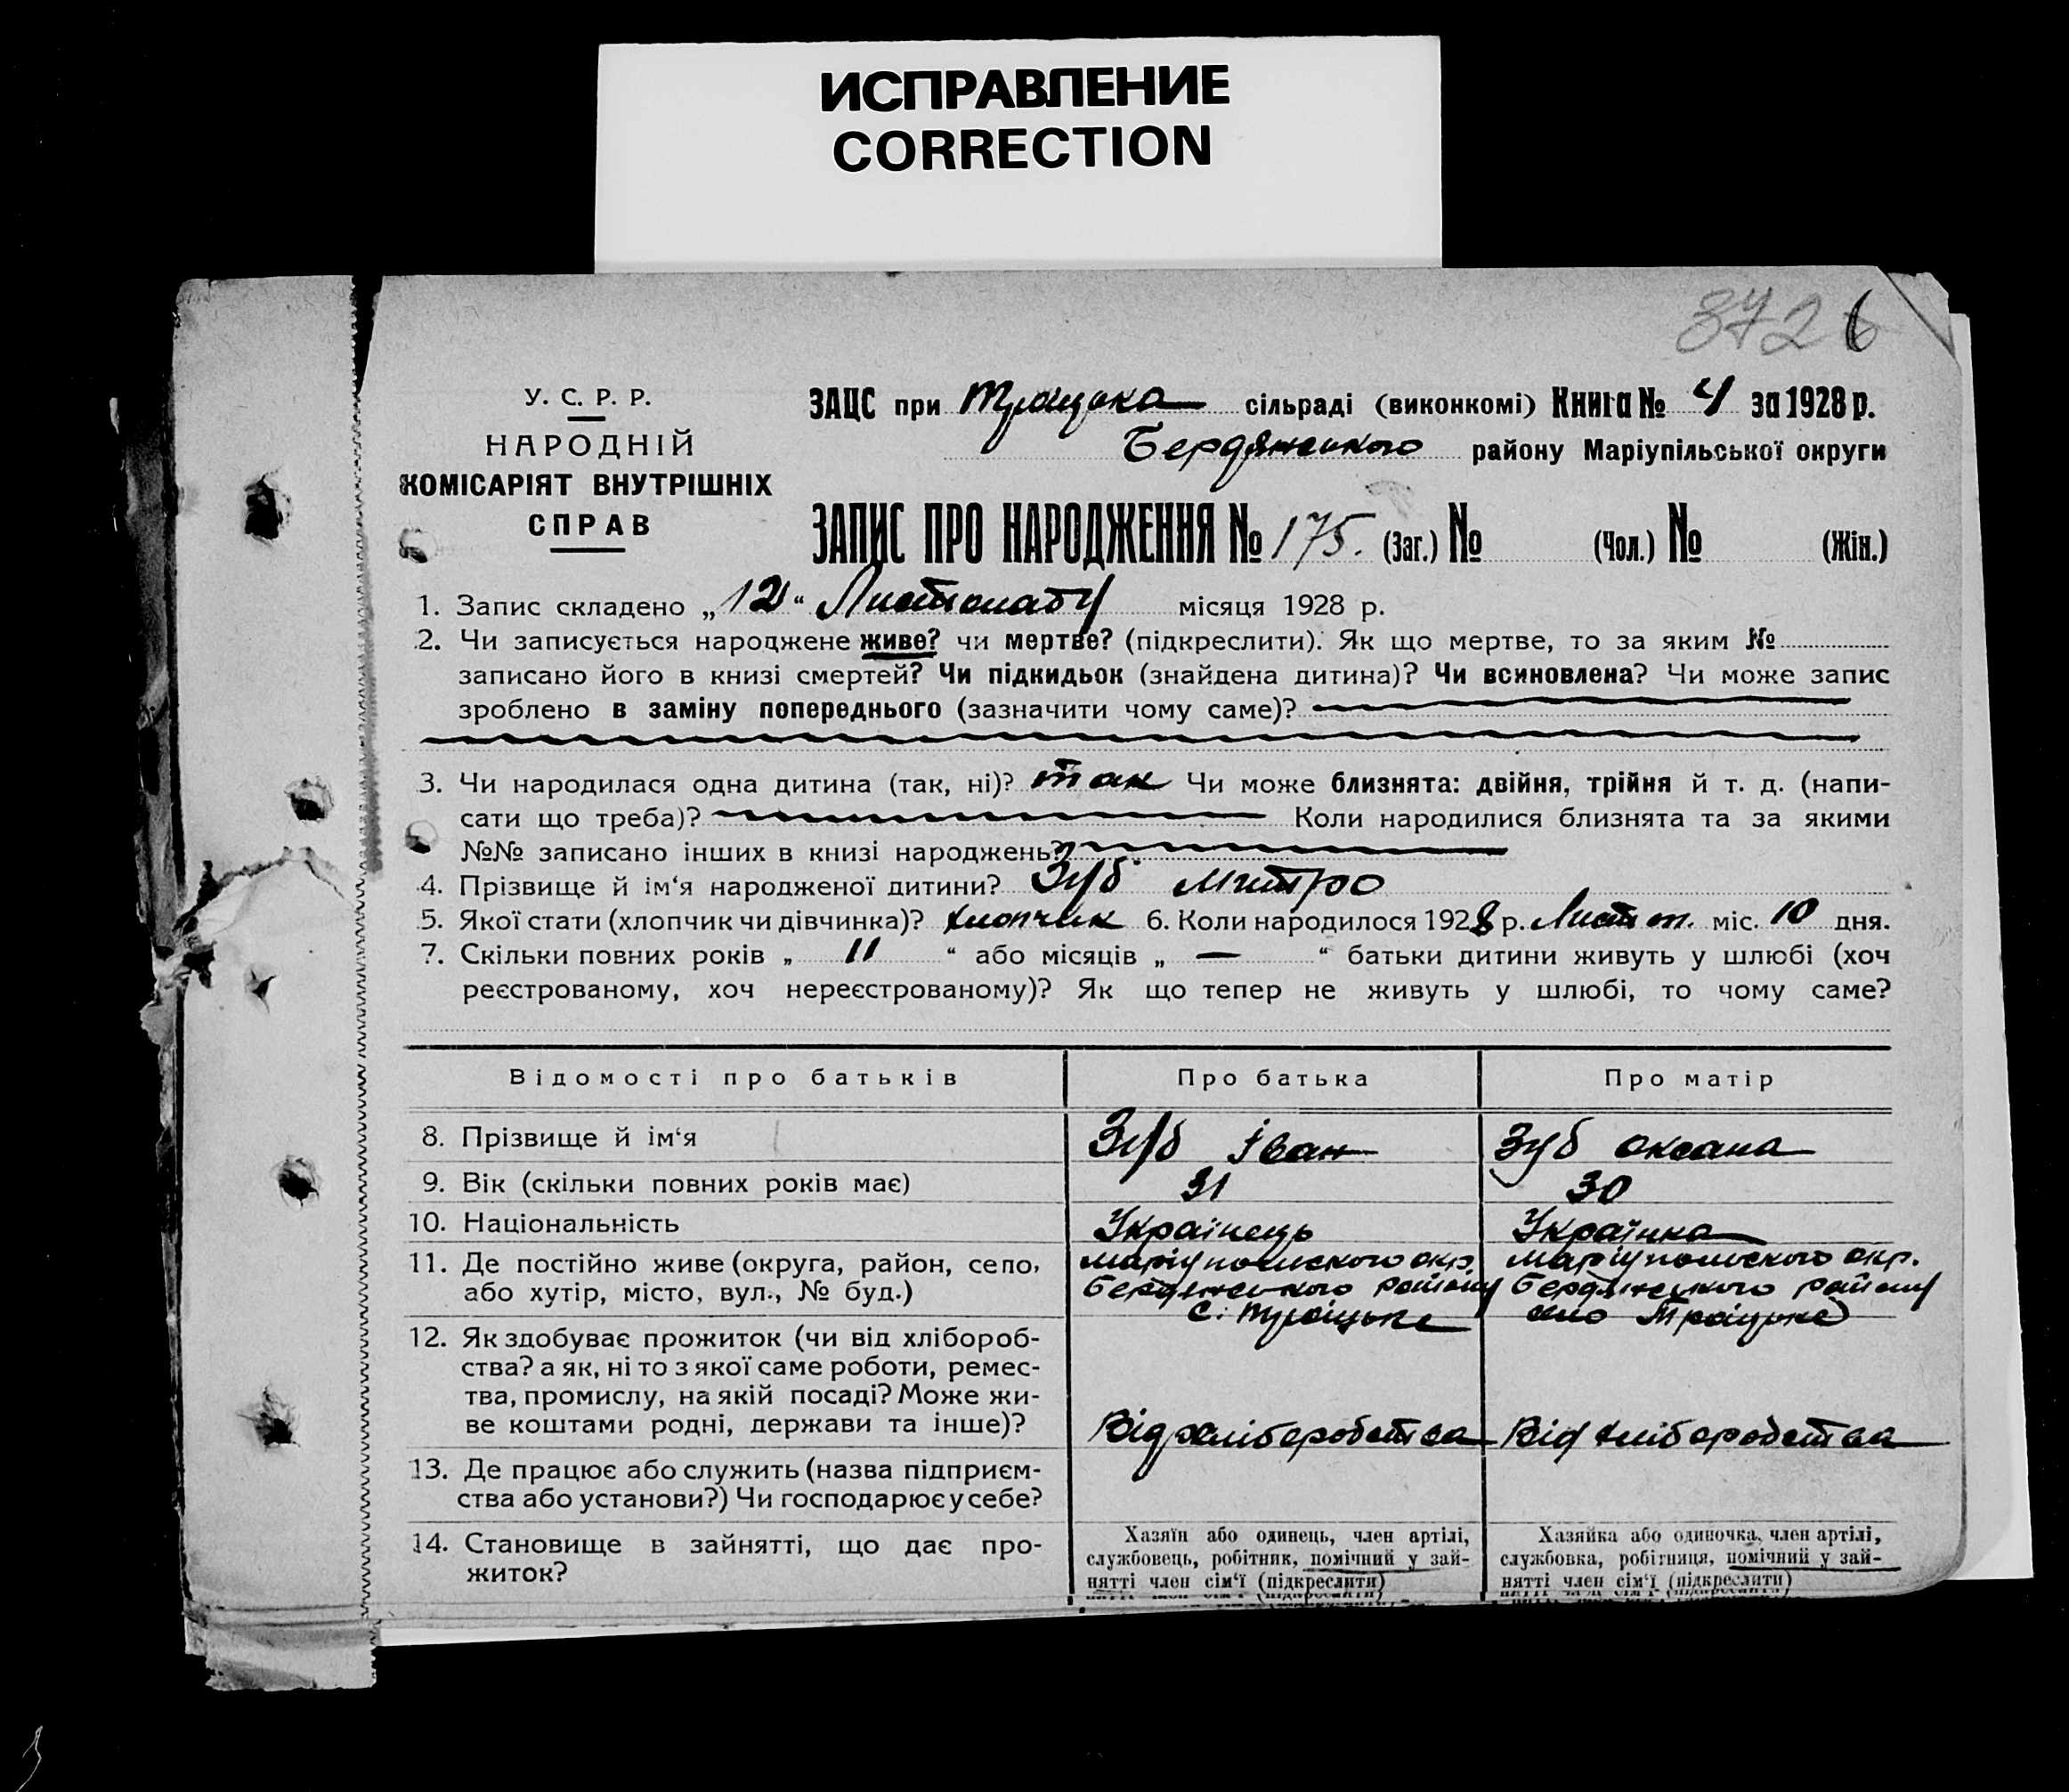 ИСПРАВЛЕНИЕ
CORRECTION
3726
У. С. Р. Р.
НАРОДНІЙ
КОМІСАРІЯТ ВНУТРІШНІХ
СПРАВ
ЗАЦС при Троіцька сільраді (виконкомі) Книга № 4 за 1928 р.
Бердянського району Маріупільської округи
ЗАПИС ПРО НАРОДЖЕННЯ № 175. (Заг.) № (Чол.) № (Жін.)
1. Запис складено „12“ Листопаду місяця 1928 р.
2. Чи записується народжене живе? чи мертве? (підкреслити). Як що мертве, то за яким №
записано його в книзі смертей? Чи підкидьок (знайдена дитина)? Чи всиновлена? Чи може запис
зроблено в заміну попереднього (зазначити чому саме)?
3. Чи народилася одна дитина (так, ні)? так Чи може близнята: двійня, трійня й т. д. (напи-
сати що треба)? Коли народилися близнята та за якими
№№ записано інших в книзі народжень?
4. Прізвище й ім‘я народженої дитини? Зуб Митро
5. Якої стати (хлопчик чи дівчинка)? хлопчик 6. Коли народилося 1928 р. Листоп. міс. 10 дня.
7. Скільки повних років „ 11 “ або місяців „ — “ батьки дитини живуть у шлюбі (хоч
реєстрованому, хоч нереєстрованому)? Як що тепер не живуть у шлюбі, то чому саме?
Відомості про батьків Про батька Про матір
8. Прізвище й ім‘я Зуб Іван Зуб Оксана
9. Вік (скільки повних років має) 31 30
10. Національність Українець Українка
11. Де постійно живе (округа, район, село, Маріупольского окр. Маріупольского окр.
або хутір, місто, вул., № буд.) Бердянського району Бердянського району
с. Троіцьке село Троіцьке
12. Як здобуває прожиток (чи від хлібороб-
ства? а як, ні то з якої саме роботи, ремес-
тва, промислу, на якій посаді? Може жи-
ве коштами родні, держави та інше)? Від хліборобства Від хліборобства
13. Де працює або служить (назва підприєм-
ства або установи?) Чи господарює у себе?
14. Становище в зайнятті, що дає про-
житок?
Хазяїн або одинець, член артілі,
службовець, робітник, помічний у зай-
нятті член сім‘ї (підкреслити)
Хазяйка або одиночка, член артілі,
службовка, робітниця, помічний у зай-
нятті член сім‘ї (підкреслити)